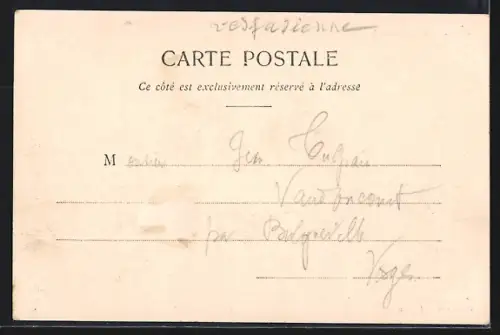 vespasienne
CARTE POSTALE
Ce côté est exclusivement réservé à l'adresse
M
Vaudoncourt
par Bulgnéville
Vosges